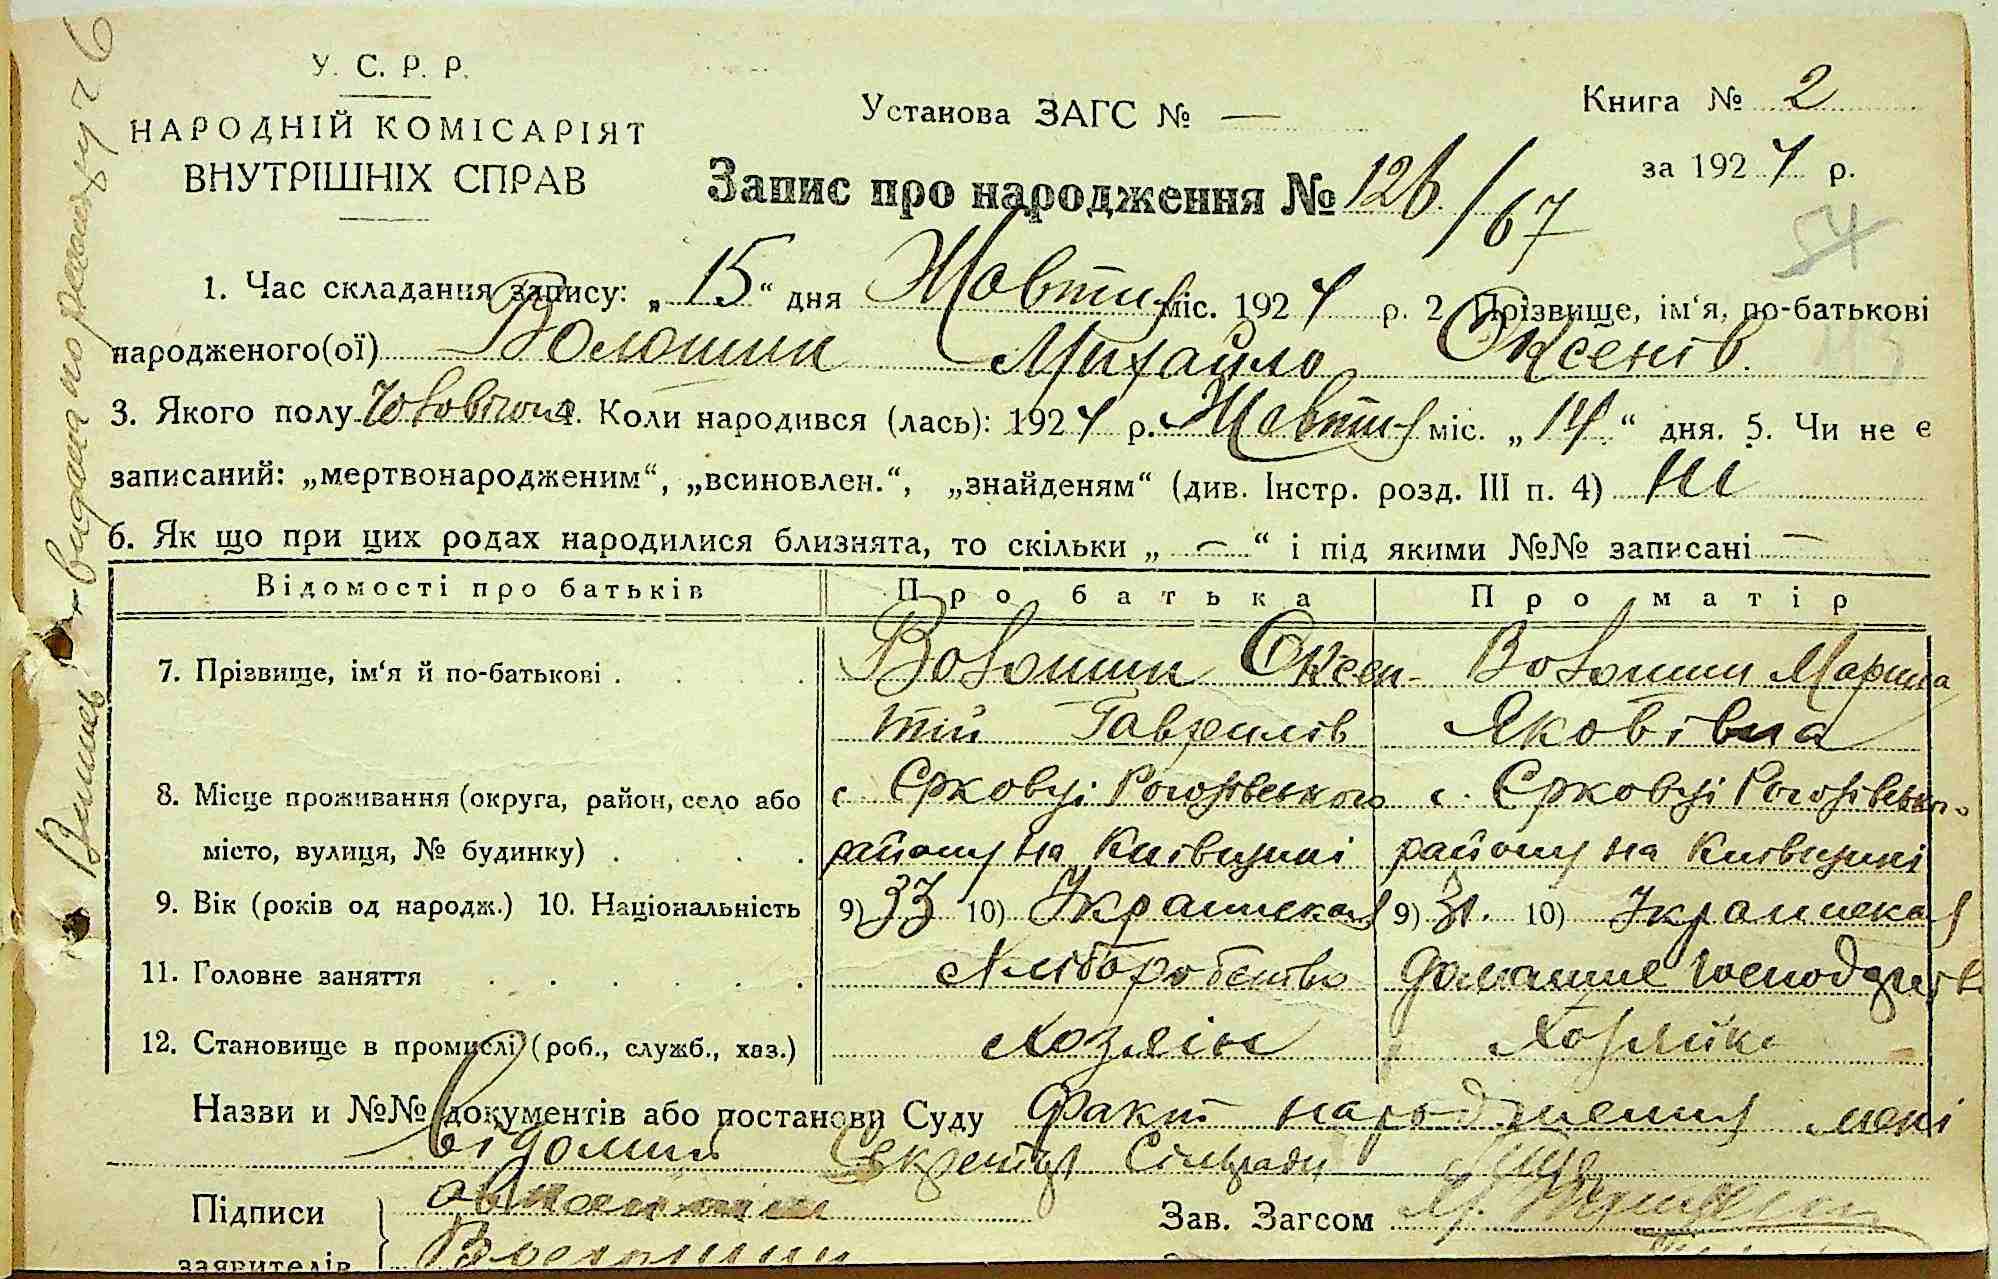 У. С. Р. Р.
НАРОДНІЙ КОМІСАРІЯТ
ВНУТРІШНІХ СПРАВ
Установа ЗАГС № —
Книга № 2
за 1927 р.
Запис про народження № 126/67
54
1. Час складання запису: „15“ дня Жовтня міс. 1927 р. 2 Прізвище, ім‘я, по-батькові
народженого(ої) Волошин Михайло Оксенів
3. Якого полу Чоловіч. 4. Коли народився (лась): 1927 р. Жовтня міс. „14“ дня. 5. Чи не є
записаний: „мертвонародженим“, „всиновлен.“, „знайденям“ (див. Інстр. розд. III п. 4) Ні
6. Як що при цих родах народилися близнята, то скільки „ — “ і під якими №№ записані —
Відомості про батьків Про батька Про матір
7. Прізвище, ім‘я й по-батькові Волошин Оксен- Волошин Марина
тій Гаврилів Яковівна
8. Місце проживання (округа, район, село або с Єрковці Рогозівського с. Єрковці Рогозівськ.
місто, вулиця, № будинку) району на Київщині району на Київщині
9. Вік (років од народж.) 10. Національність 9) 33 10) Українская 9) 31. 10) Українская
11. Головне заняття Хліборобство домашнє господарств
12. Становище в промислі (роб., служб., хаз.) Хозяін Хозяйк
Назви и №№ документів або постанови Суду Факт народження мені
відомий Секретар Сільради
Підписи
Зав. Загсом
заявителів Волошин